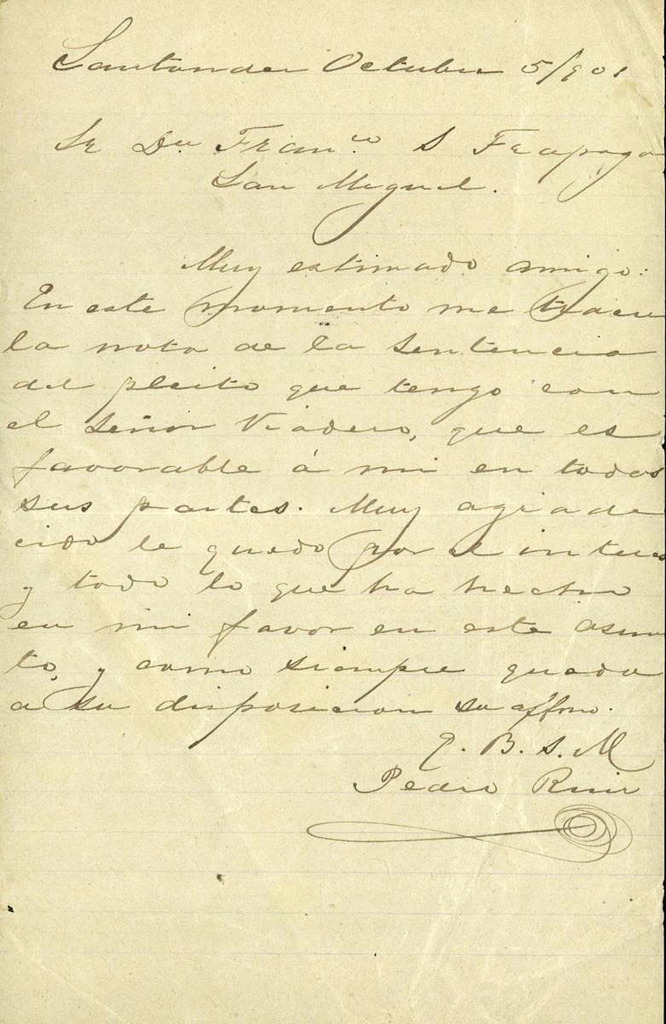 Santander Octubre 5/901
Sr Dn Franco S Trapaga
San Miguel.
Muy estimado amigo:
En este momento me traen
la nota de la sentencia
del pleito que tengo con
el Señor Viadero, que es
favorable á mi en todas
sus partes. Muy agrade
cido le quedo por el interes
y todo lo que ha hecho
en mi favor en este asun
to, y como siempre queda
a su disposicion su affmo.
Q. B. S. M
Pedro Ruiz